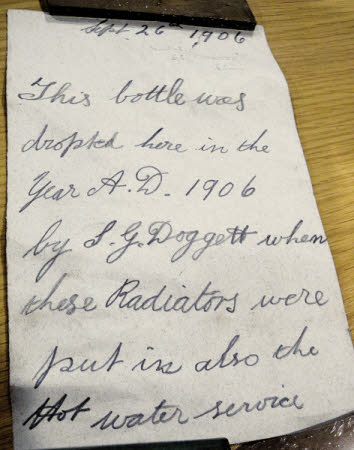 Sept. 26th 1906
This bottle was
dropted here in the
Year A.D. 1906
by S. G. Doggett when
these Radiators were
put in also the
Hot water service